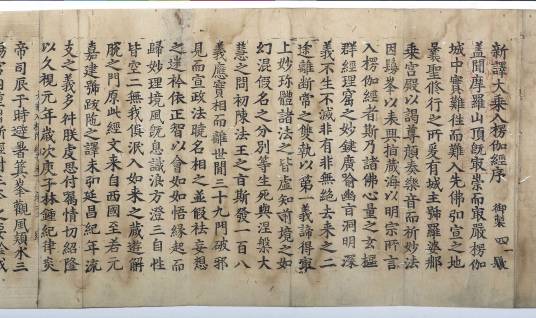 新譯大乘入楞伽經序 御製
蓋聞摩羅山頂旣㝡崇而㝡嚴楞伽
城中實難往而難入先佛弘宣之地
曩聖修行之所爰有城主號羅婆那
乘宮殿以謁尊顔奏樂音而祈妙法
因𨺗峯以表興指藏海以明宗所言
入楞伽經者斯乃諸佛心量之玄樞
群經理窟之妙鍵廣喻幽音洞明深
義不生不滅非有非無絶去來之二
途離斷常之雙執以第一義諦得㝡
上妙珎體諸法之皆虛知前境之如
幻混假名之分別等生死與涅槃大
慧之問初陳法王之旨斯發一百八
義應寶相而離世閒三十九門破邪
見而宣政法曉名相之並假祛妄想
之迷衿依正智以會如如悟緣起而
歸妙理境風旣息識浪方澄三自性
皆空二無我俱泯入如來之藏遊解
脫之門原此經文来自西國至若元
嘉建號跋陁之譯未弘延昌紀年流
支之義多舛朕虔思付囑情切紹隆
以久視元年歳次庚子林鍾紀律炎
帝司辰于時避暑箕峯觀風頴水三